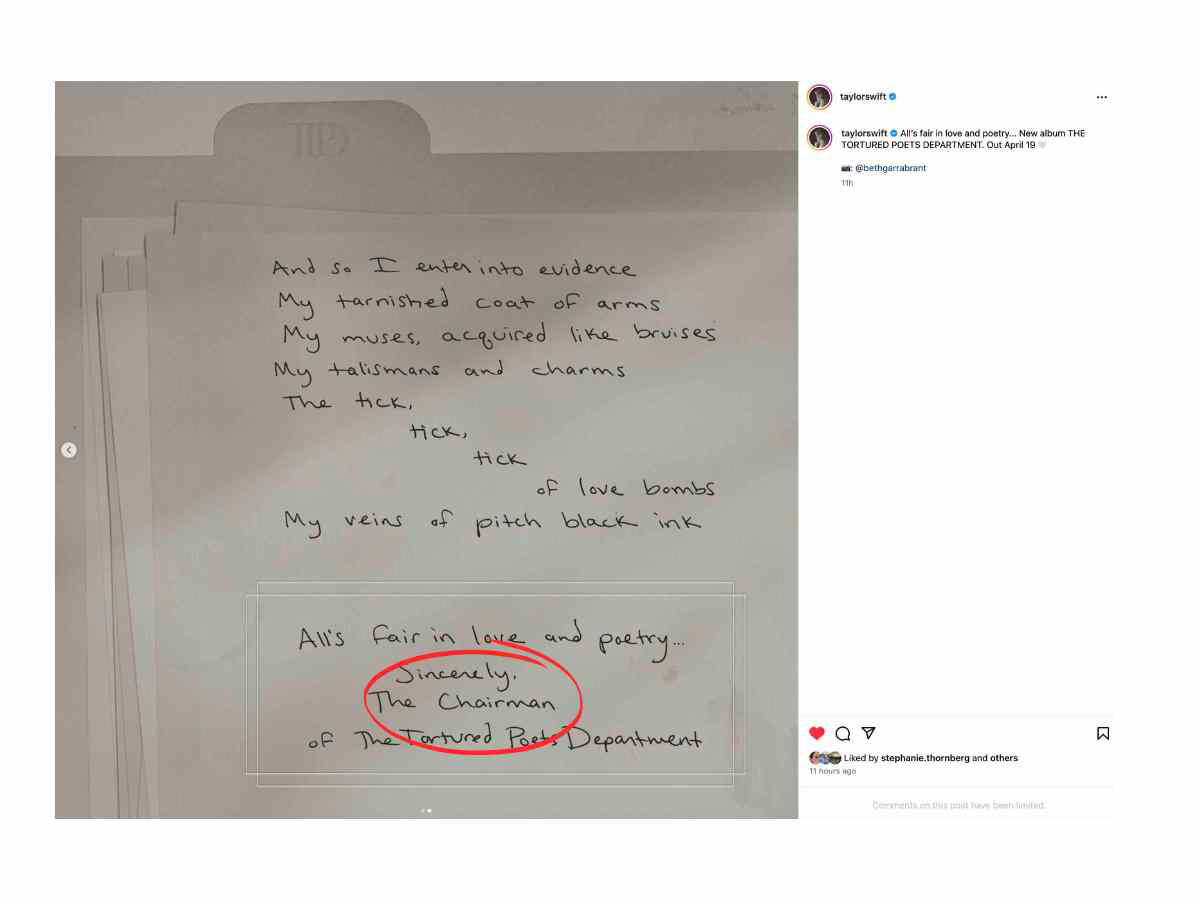 TTPD
And so I enter into evidence
My tarnished coat of arms
My muses, acquired like bruises
My talismans and charms
The tick,
tick,
tick
of love bombs
My veins of pitch black ink
All's fair in love and poetry...
Sincerely,
The Chairman
of The Tortured Poets Department
taylorswift
taylorswift All's fair in love and poetry... New album THE
TORTURED POETS DEPARTMENT. Out April 19 🤍
📸: @bethgarrabrant
11h
Liked by stephanie.thornberg and others
11 hours ago
Comments on this post have been limited.